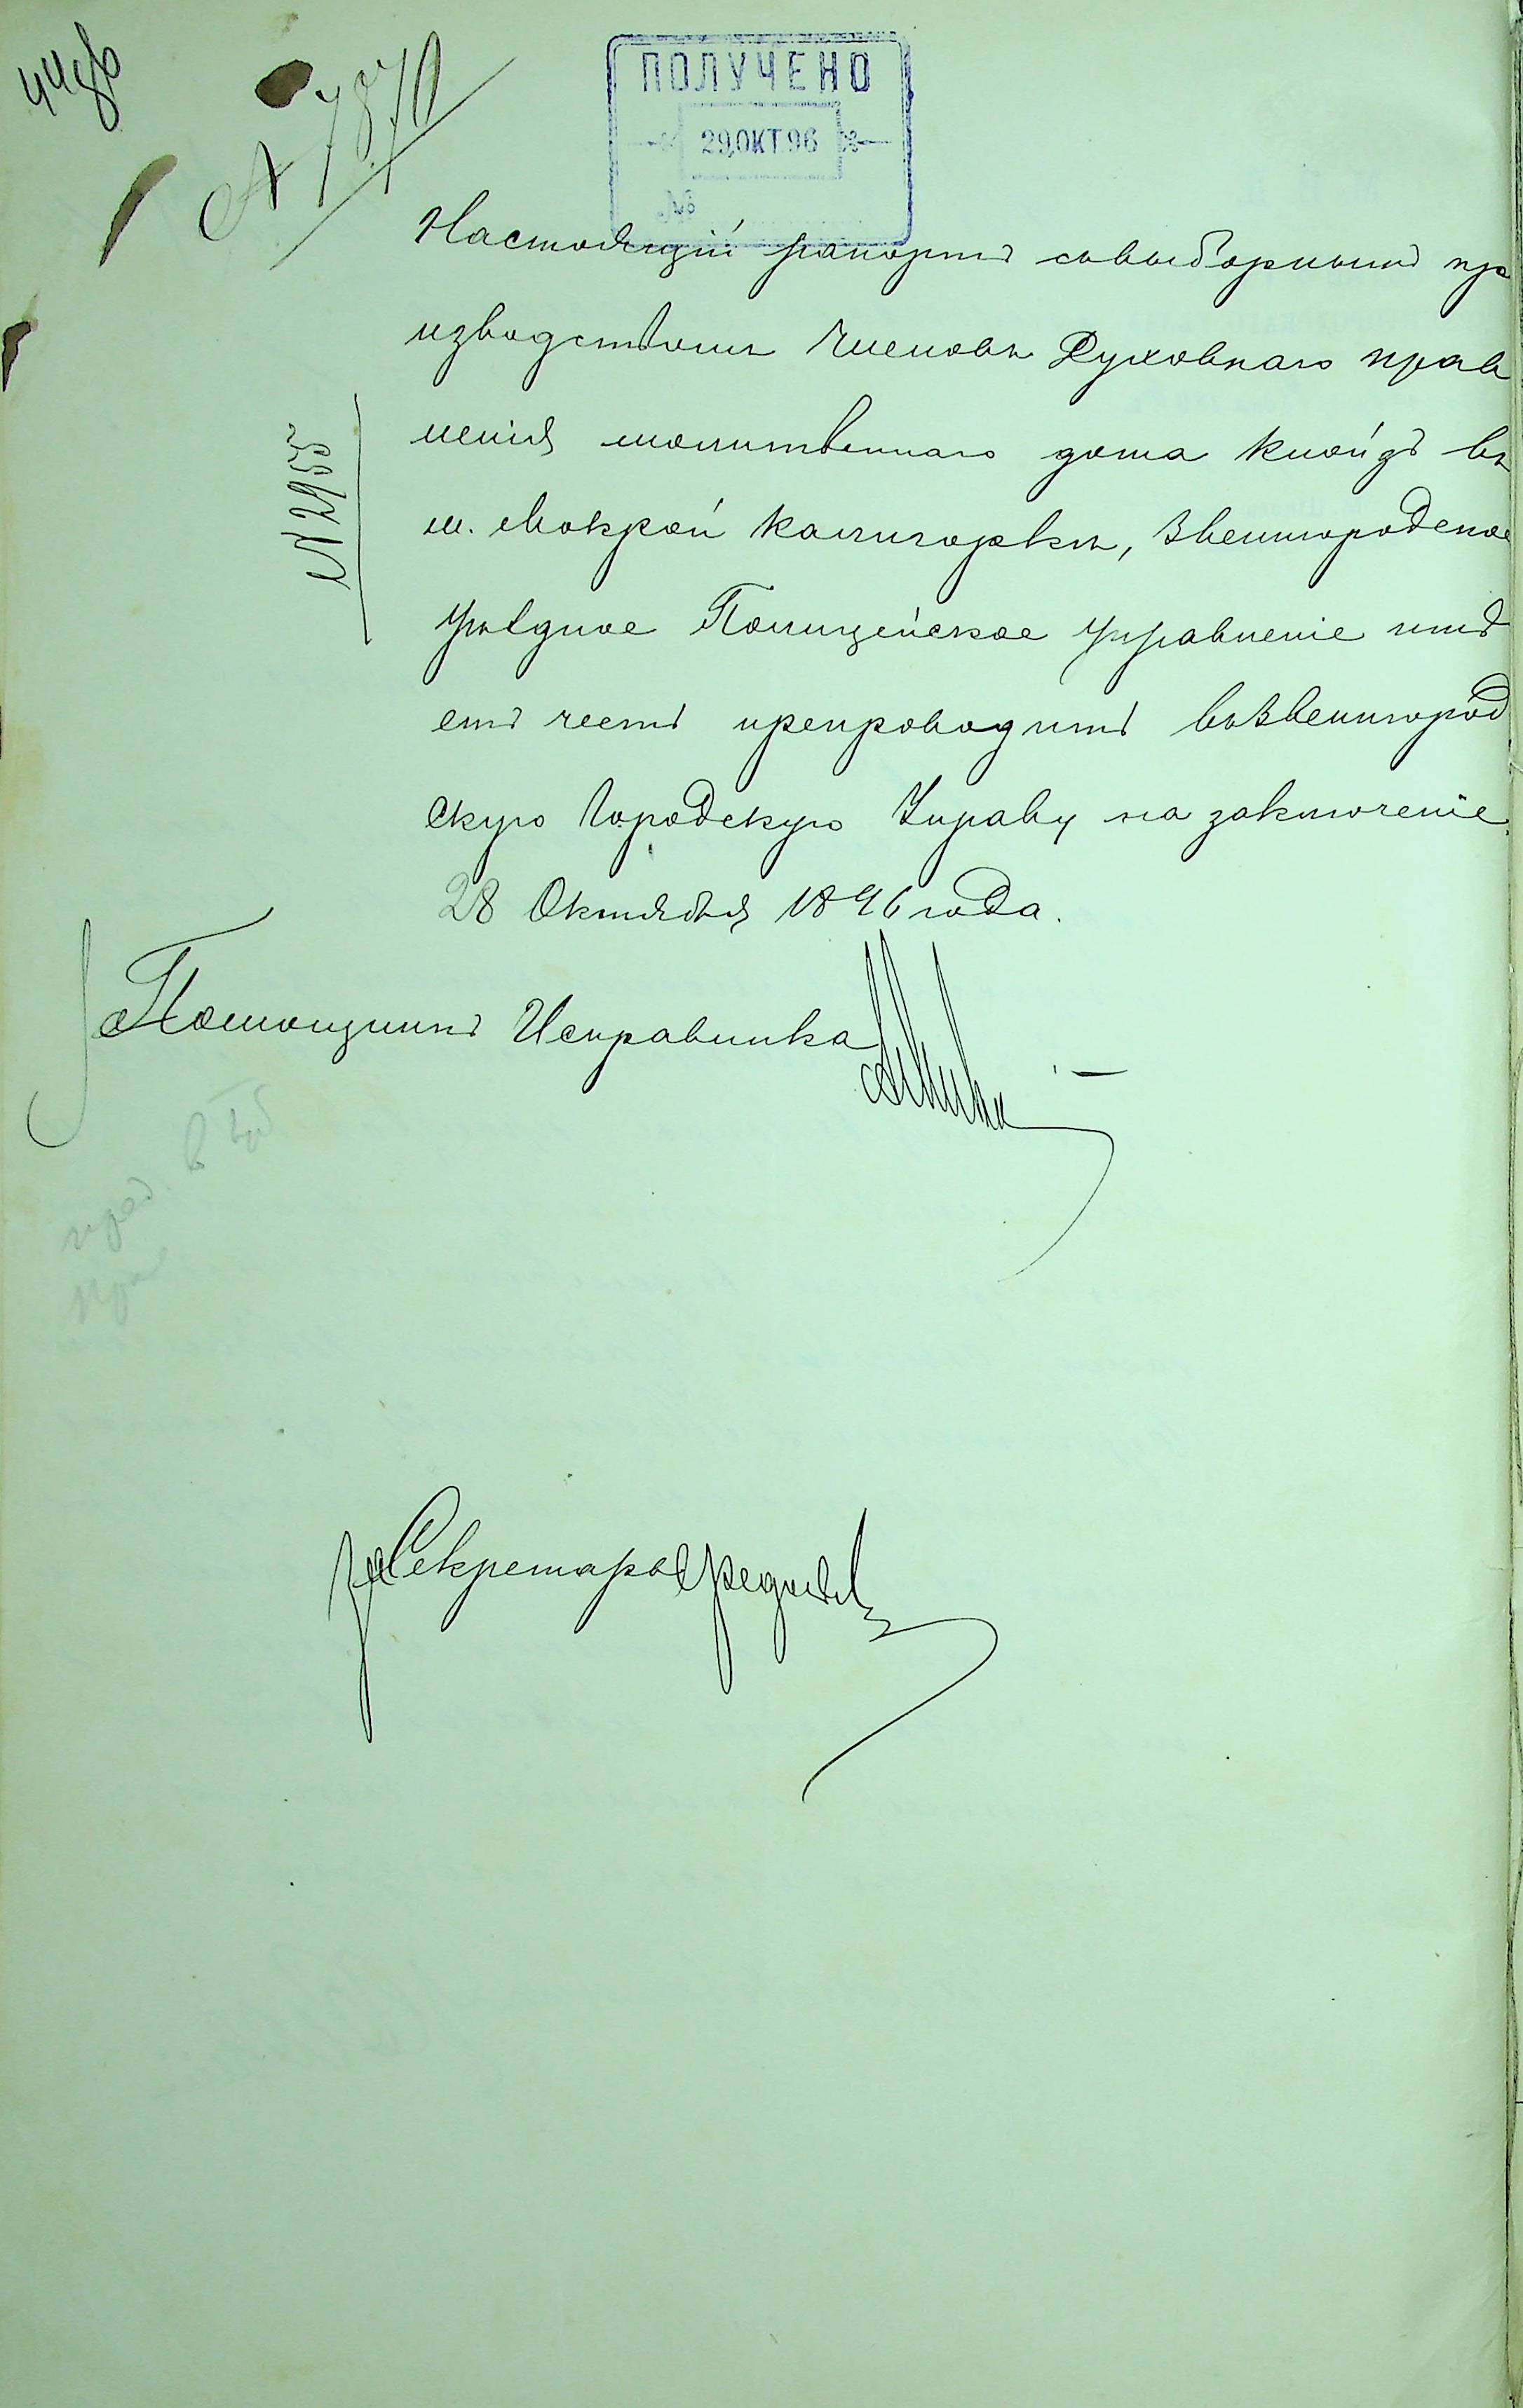 ПОЛУЧЕНО
29 ОКТ 96
№
№ 7870
Настоящій рапортъ съ выборнымъ про
изводствомъ Членовъ Духовнаго прав
ленія молитвеннаго дома Клойзъ въ
м. Мокрой Калигоркѣ, Звенигородское
Уѣздное Полицейское Управленіе имѣ
етъ честь препроводить въ Звенигород
скую Городскую Управу на заключеніе.
28 Октября 1896 года.
№ 2955
За Помощникъ Исправника
За Секретаря